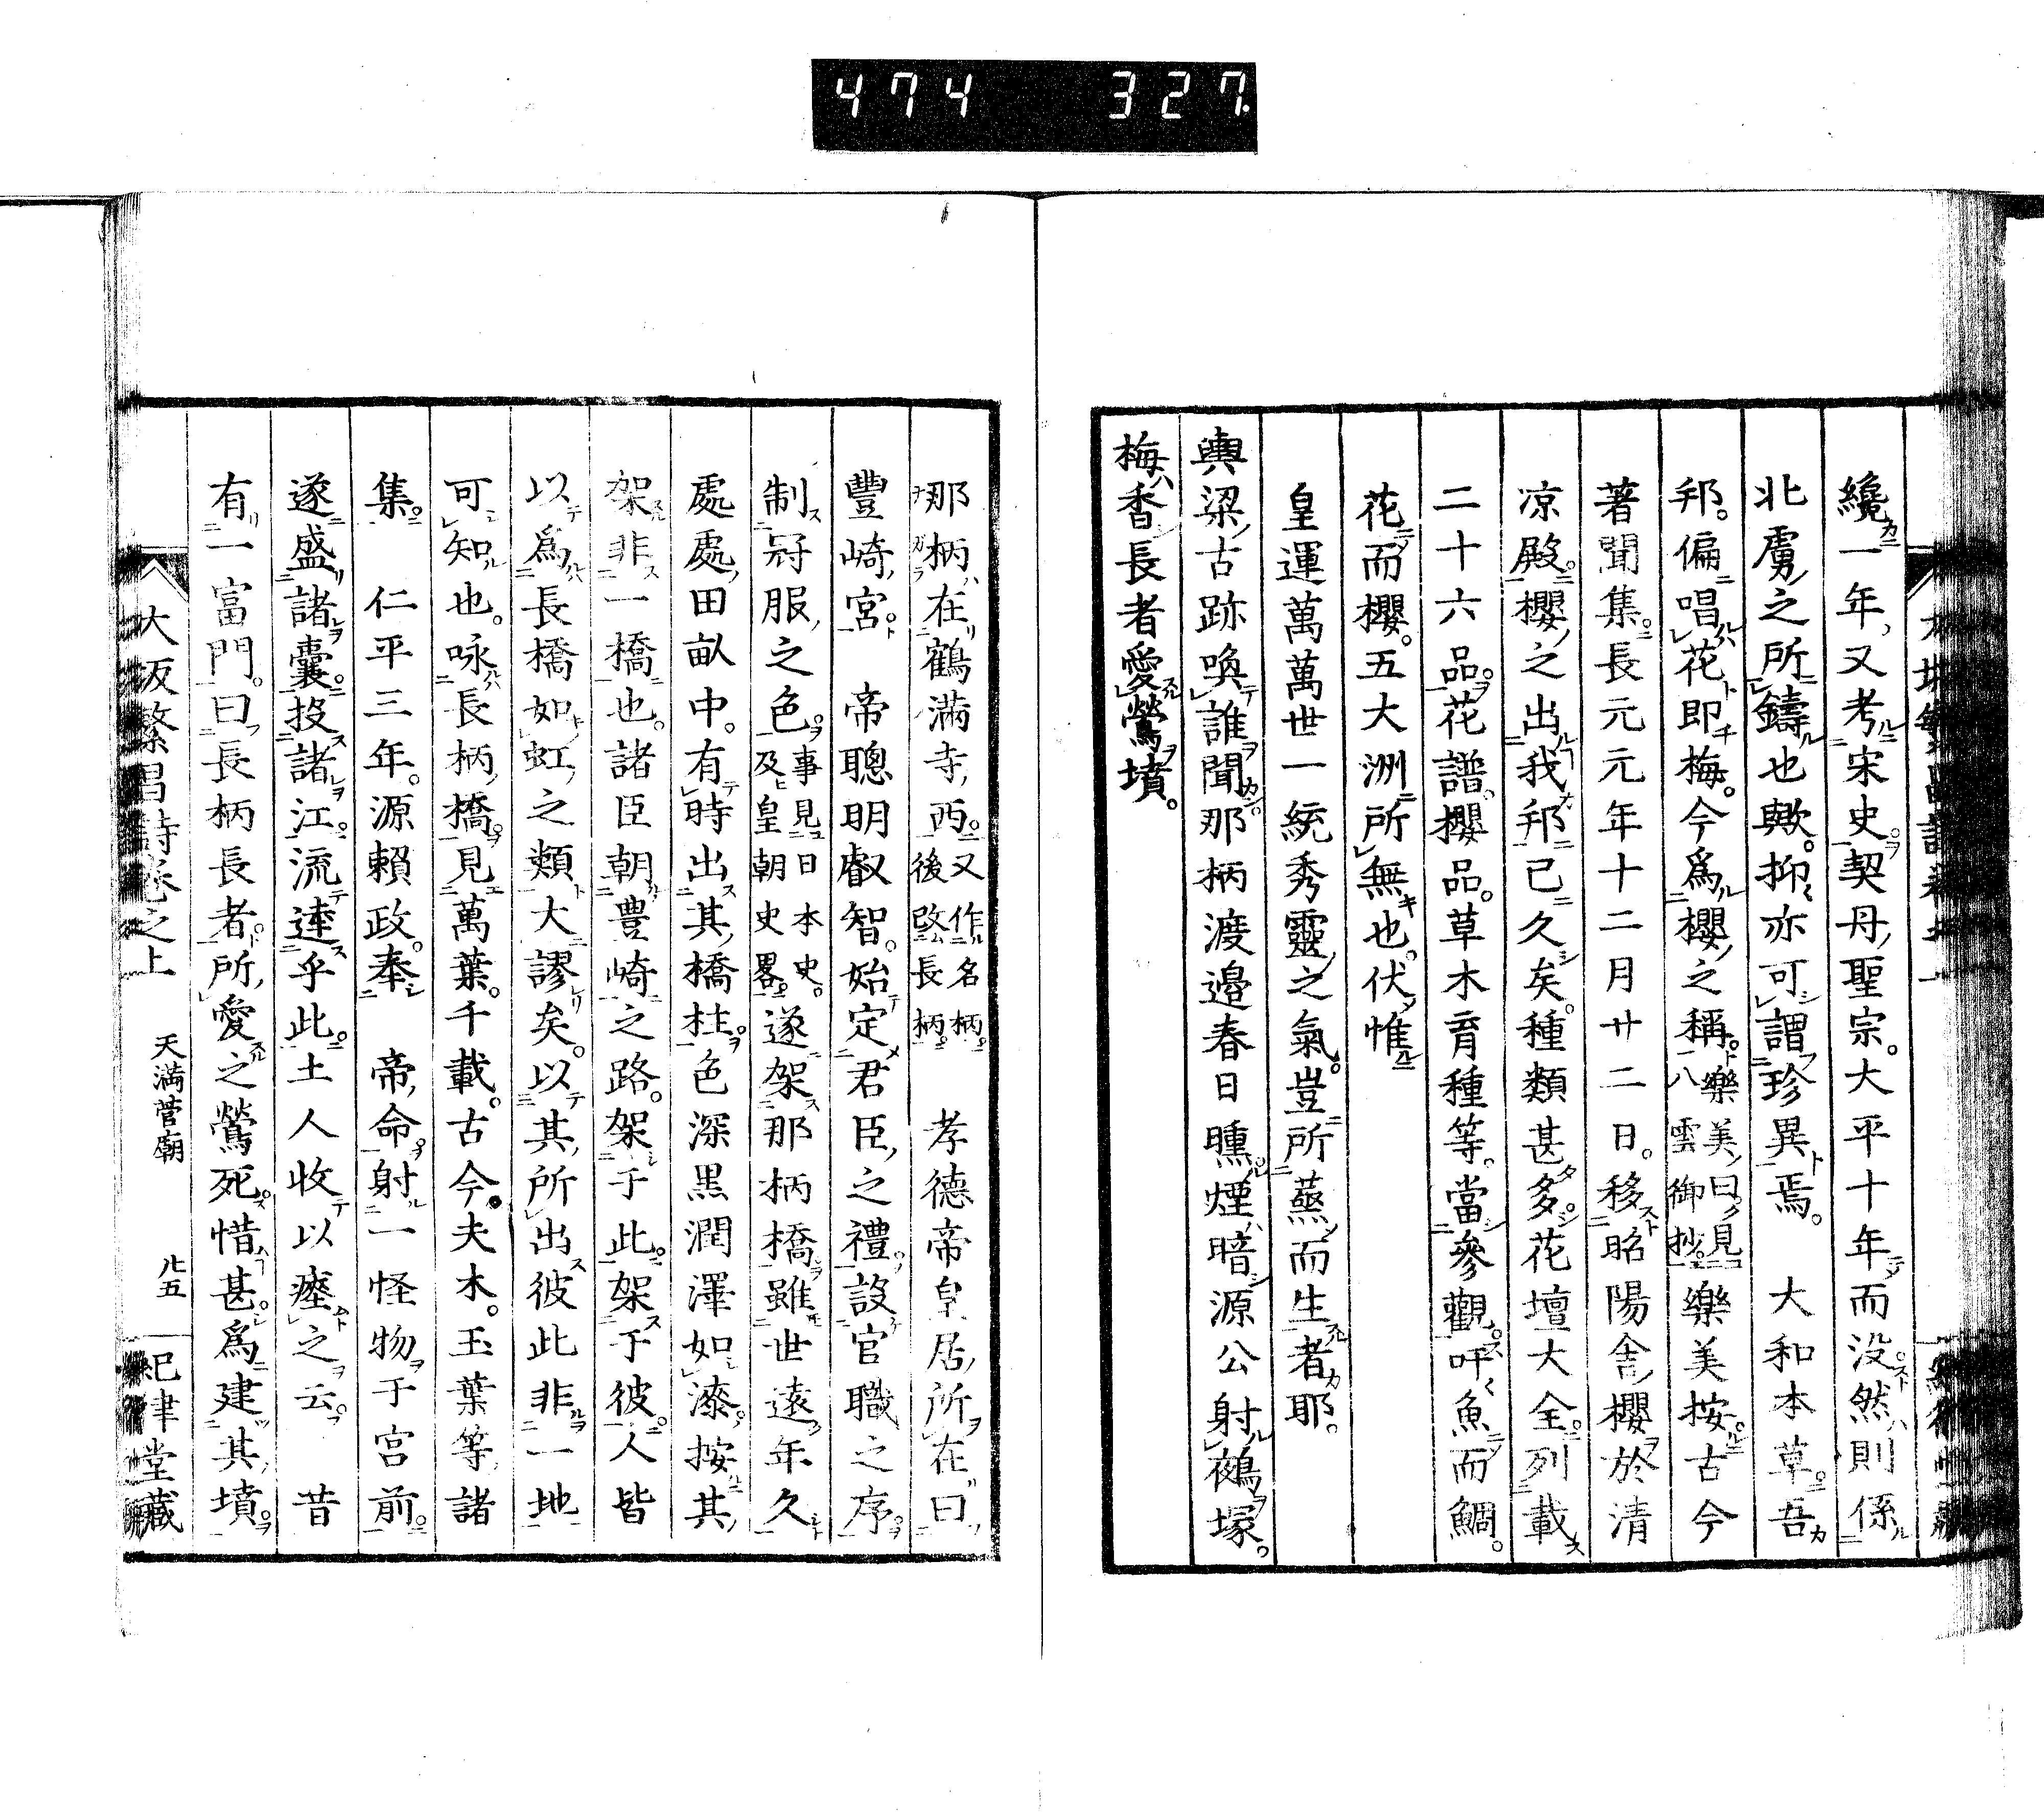 474 327
纔一年又考宋史契丹聖宗大平十年而没然則係
北虜之所鑄也歟抑亦可謂珍異焉 大和本草吾
邦偏唱花即梅今爲櫻之稱樂美曰見八雲御抄樂美按古今
著聞集長元元年十二月廿二日移昭陽舍櫻於清
凉殿櫻之出我邦已久矣種類甚多花壇大全列載
二十六品花譜櫻品草木育種等當參觀吁魚而鯛
花而櫻五大洲所無也伏惟
皇運萬萬世一統秀靈之氣豈所蒸而生者耶
輿梁古跡喚誰聞那柄渡邉春日曛煙暗源公射鵺塚
梅香長者愛鶯墳
那柄在鶴滿寺西又作名柄後改長柄 孝德帝皇居所在曰
豐崎宮 帝聰明叡智始定君臣之禮設官職之序
制冠服之色事見日本史及皇朝史畧遂架那柄橋雖世遠年久
處處田畝中有時出其橋柱色深黒潤澤如漆按其
架非一橋也諸臣朝豊崎之路架于此架于彼人皆
以爲長橋如虹之類大謬矣以其所出彼此非一地
可知也咏長柄橋見萬葉千載古今夫木玉葉等諸
集 仁平三年源賴政奉 帝命射一怪物于宮前
遂盛諸囊投諸江流達乎此土人收以瘞之云 昔
有一富門曰長柄長者所愛之鶯死惜甚爲建其墳
大阪繁昌詩卷之上 天滿菅廟 廿五 巳聿堂藏